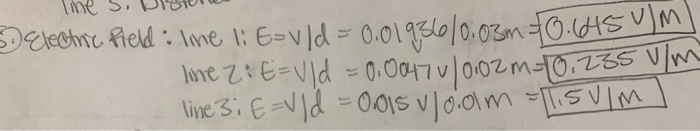 line 3. Distance
5. Electric field: line 1: E=V/d = 0.01936/0.03m = 0.645 V/m
line 2: E=V/d = 0.0047v/0.02m = 0.235 V/m
line 3: E=V/d = 0.015v/0.01m = 1.5 V/m